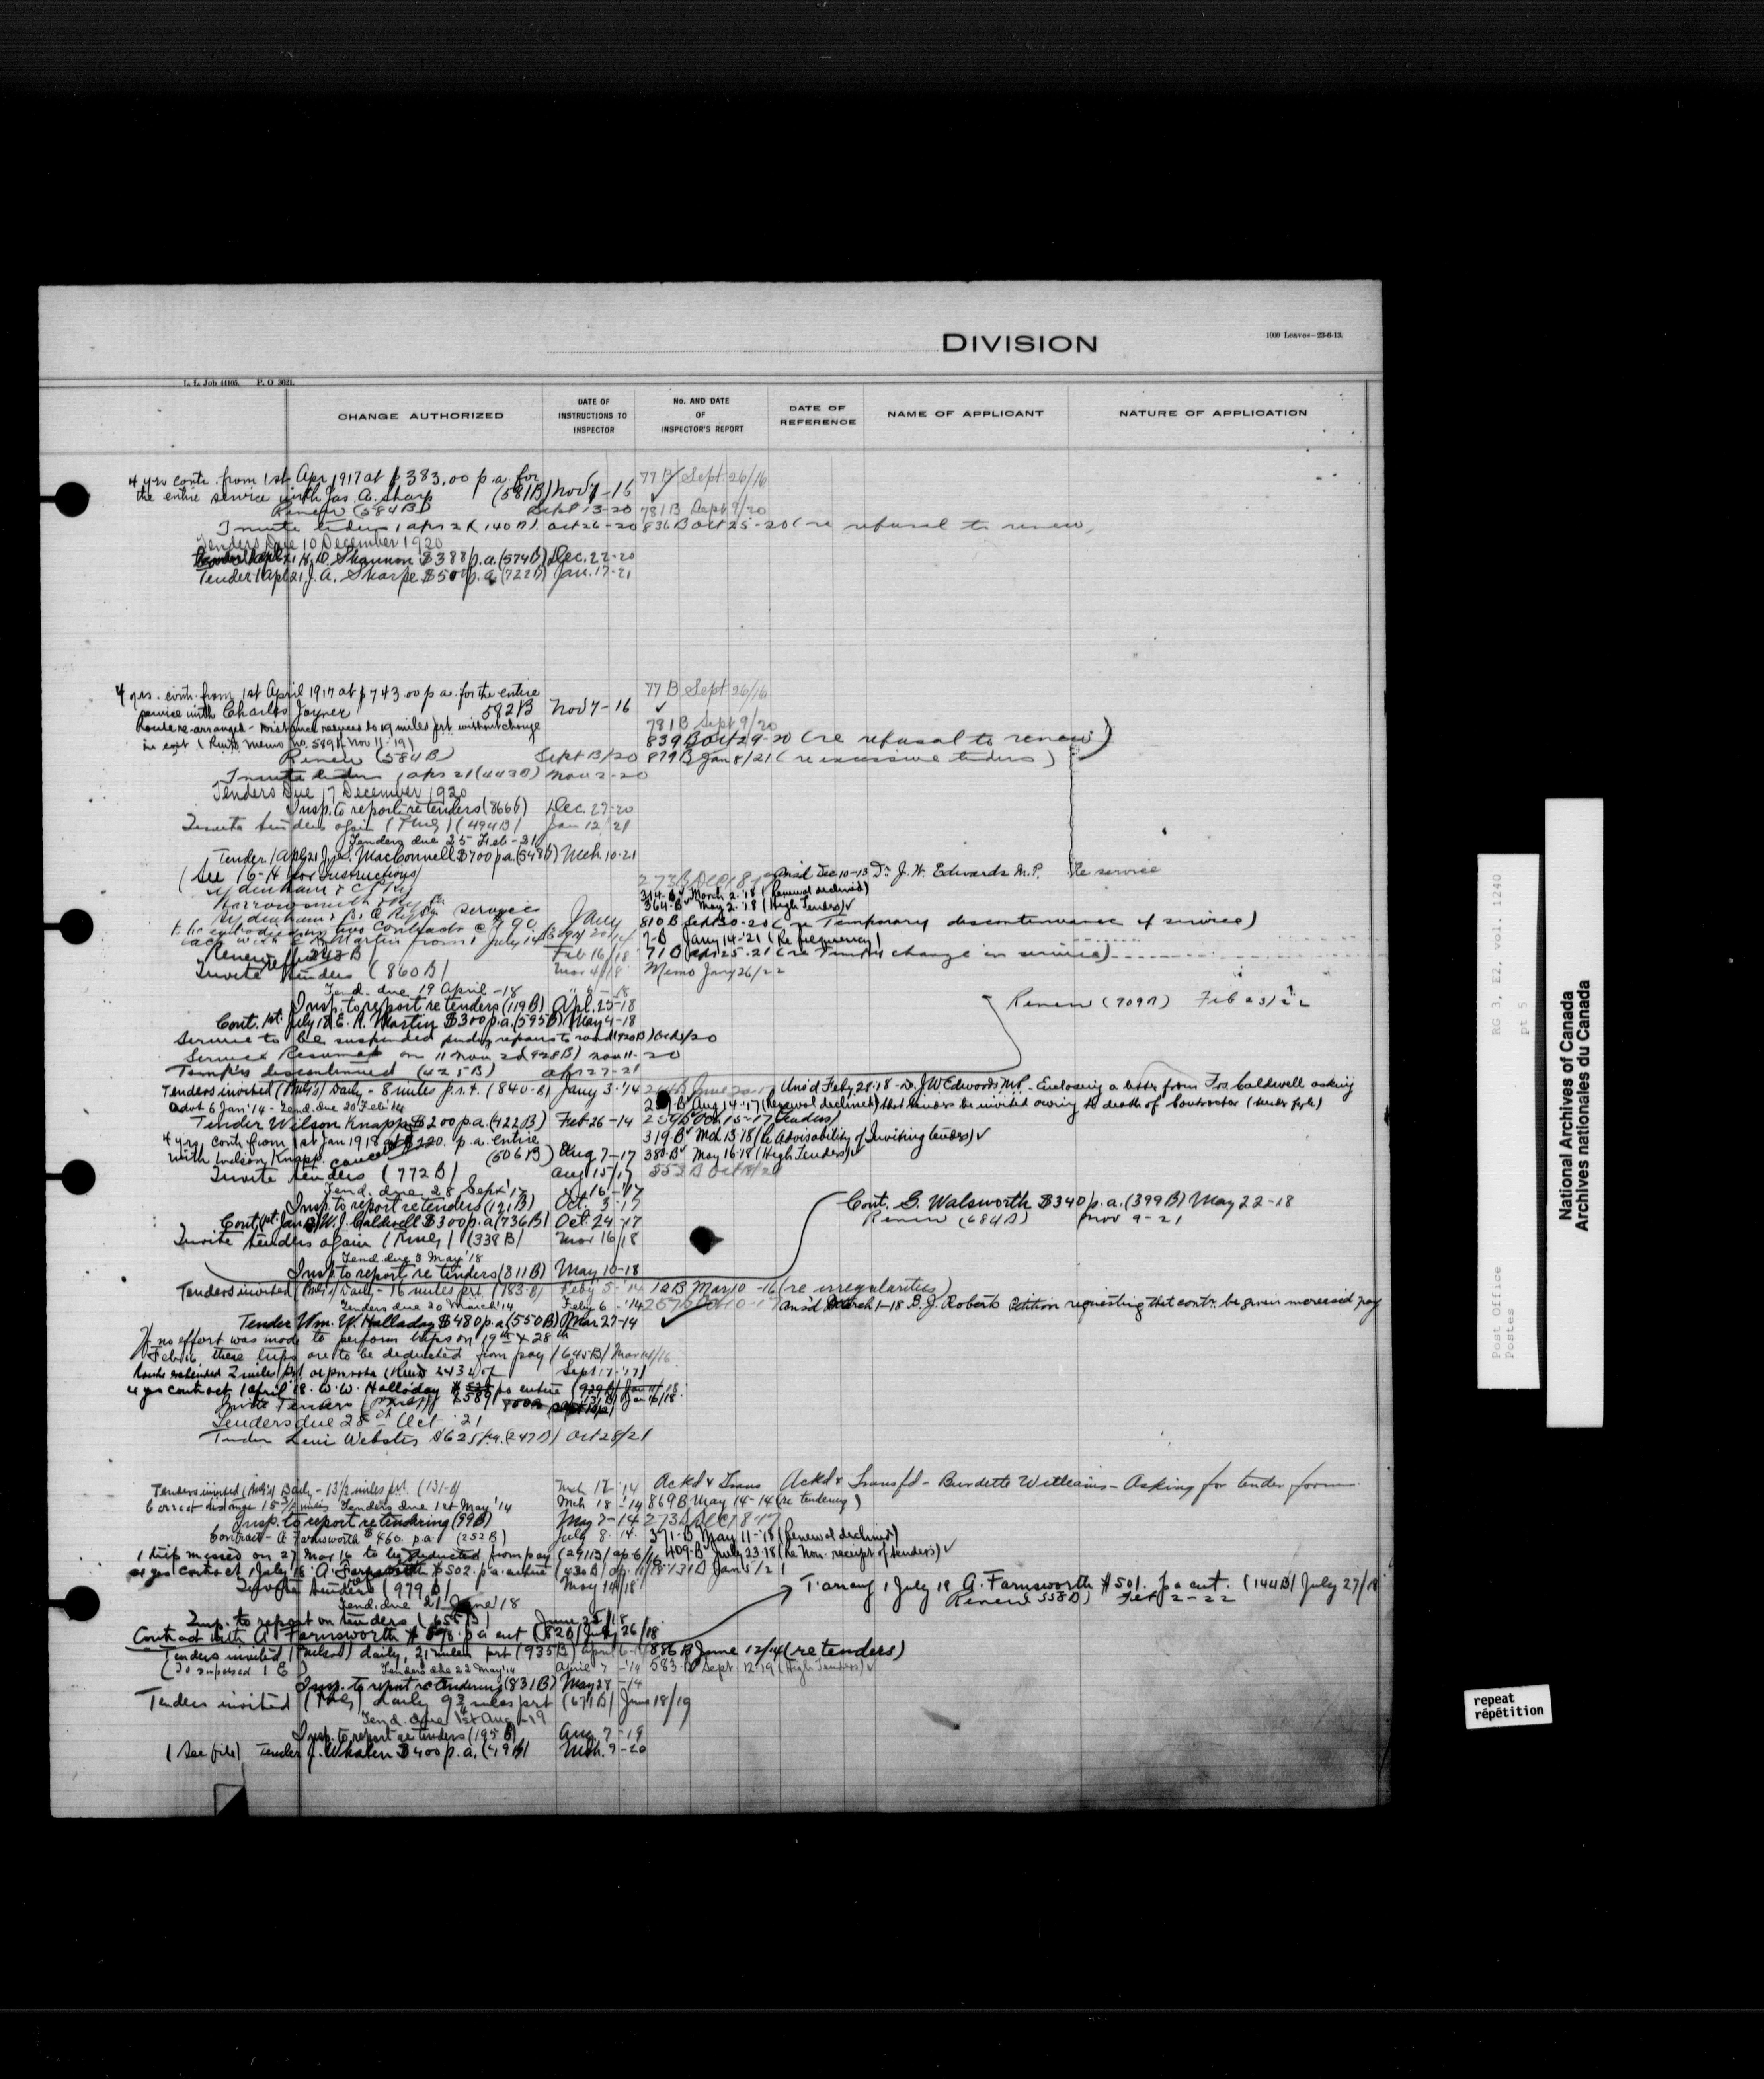 DIVISION
1000 Leaves-23-6-13.
L. L. Job 44105. P. O 3621.
CHANGE AUTHORIZED
DATE OF INSTRUCTIONS TO INSPECTOR
No. AND DATE OF INSPECTOR'S REPORT
DATE OF REFERENCE
NAME OF APPLICANT
NATURE OF APPLICATION
4 yrs contr. from 1st Apr 1917 at $383.00 p.a. for 77 B Sept. 26/16
the entire service with Jas. A. Sharp (581B) Nov 7-16
Renew (584B) Sept 13-20 781B Sept 9/20
Invite tenders 1 apr 21 (140B) Oct 26-20 836B Oct 25-20 (re refusal to renew)
Tenders Due 10 December 1920
Tender 1 Apl 21 H. D. Shannon $388 p.a. (574B) Dec. 22-20
Tender 1 Apl 21 J. A. Sharpe $500 p.a. (722B) Jan. 17-21
4 yrs. contr. from 1st April 1917 at $743.00 p a. for the entire 77 B Sept 26/16
service with Charles Joyner 582B Nov 7-16
Route re-arranged - Distance reduced to 19 miles p.r.t. without change 781B Sept 9/20
in cost (Rms Memo No. 5891- Nov 11-19) 839B Oct 29-20 (re refusal to renew)
Renew (584B) Sept 13/20 879B Jan 8/21 (re excessive tenders)
Invite tenders 1 apr 21 (443B) Nov 2-20
Tenders Due 17 December 1920
Insp. to report re tenders (866B) Dec. 27-20
Invite tenders again (494B) Jan 12/21
Tenders due 25 Feb-21
Tender 1 Apl 21 Jas. MacConnell $700 p.a. (548B) Mch 10-21
(See 16-H for instructions) 273B Dec 18/ Dec 10-13 Dr. J. W. Edwards M.P. Re service
Sydenham & C P Ry 314-B March 2-'18 (Renewal declined)
Harrowsmith 364-B May 2-'18 (High Tenders)
Sydenham & Ry Stn service 810 B Sept 30-20 (re Temporary discontinuance of service)
to be embodied in two contracts @ $90. Jany
each with E R Martin from 1 July 14 7-B Jany 14-'21 (Re frequency)
Renew 243 B Feb 16/18 71 B Apr 25-21 (re Tempy change in service)
Invite tenders (860B) Mar 4/18 Memo Jany 26/22
Tend. due 19 April -18 " 6-18
Insp. to report re tenders (119B) Apl. 25-18 Renew (909B) Feb 23/22
Cont. 1st July 18 E. R. Martin $300 p.a. (595B) May 4-18
Service to be suspended pending repairs to road (920B) Oct /20
Service Resumed on 11 Nov. 20 (928B) Nov 11-20
Temp'ly discontinued (425B) Apr 27-21
Tenders invited (Mil'g) Daily - 8 miles p.r.t. (840-B) Jany 3-'14 264B June 20-17 Ans'd Feby 28-18 - Dr. J W Edwards M.P. - Enclosing a letter from Fos. Caldwell asking
Advt 6 Jan'14 - Tend. due 20 Feb'14 Aug 14-'17 (Renewal declined) that tenders be invited owing to death of Contractor
Tender Wilson Knapp $200 p.a. (422B) Feb 26-14 Oct. 15-17 (Tenders)
4 yrs. contr. from 1st Jan 1918 at $220. p.a. entire 319-B Mch 13-18 (Re Advisability of Inviting tenders)
with Wilson Knapp. cancelled (506B) Aug 7-17 380-B May 16-18 (High Tenders)
Invite tenders (772B) Aug 15/17 553 B Oct 18/21
Tend. due 28 Sept '17 " 16-'17
Insp. to report re tenders (121B) Oct. 3-17 Cont. G. Walsworth $340 p.a. (399B) May 22-18
Cont 1st Jan 18 W. J. Caldwell $300 p.a. (736B) Oct. 24-17 Renew (684B) Nov 9-21
Invite tenders again (338B) Mar 16/18
Tend. due 3 May '18
Insp. to report re tenders (811B) May 10-18
Tenders invited (Mil'g) Daily - 16 miles prt. (183-B) Feby 5-'14 12B Mar 10-16 (re irregularities)
Tenders due 20 March '14 Feby 6-'14 257B Oct 10-17 Ans'd March 1-18 B. J. Roberts Petition requesting that contr. be given increased pay
Tender Wm. W. Halladay $480 p.a. (550B) Mar 27-14
If no effort was made to perform trips on 19th & 28th
Feb 16, these trips are to be deducted from pay (645B) Mar 14/16
Route extended 2 miles prt at pro rata (Rms 2431 of Sept 17-'17)
4 yrs contract 1 April '18. W. W. Halladay $589 p.a. entire Jan 16/18
Invite Tenders
Tenders due 28th Oct. 21
Tender Levi Webster $625 p.a. (247B) Oct 28/21
Tenders invited (Mil'g) Daily - 13½ miles prt. (131-B) Mch 17-'14 Ackd & Trans Ackd & Transfd - Burdette Williams - Asking for tender forms
Correct distance 15½ miles Tenders due 1st May '14 Mch 18-'14 869B May 14-14 (re tendering)
Insp. to report re tendering (99B) May 7-14 273B Dec 18-17
Contract - A Farnsworth $460. p.a. (252B) July 8-14. 371-B May 11-'18 (Renewal declined)
1 trip missed on 27 Mar 16 to be deducted from pay (291B) Ap 6/16 409-B July 23-18 (Re Non-receipt of tenders)
4 yrs contract 1 July '18. A. Farnsworth $502. p.a. entire 131B Jan 5/21
Invite tenders (979B) May 14/18 Tarrang 1 July 18 A. Farnsworth $501. p a ent. (144B) July 27/18
Tend. due 21 June '18 Renew 558B) Feb 2-22
Insp. to report on tenders (655B) June 25/18
Contract with A Farnsworth p a ent (820) July 26/18
Tenders invited (Mil'g) daily, 21 miles prt (935B) April 6-14 886 B June 12/14 (re tenders)
(To supersed 1 E) Tenders due 22 May '14 April 7-'14 583-B Sept 12-19 (High Tenders)
Insp. to report re tendering (831B) May 28-14
Tenders invited daily 9¾ miles prt (671B) June 18/19
Tend. due 1st Aug-19
Insp. to report re tenders (195B) Aug. 7-19
(See file) Tender J. Whalen $400 p.a. (49B) Mch. 9-20
National Archives of Canada
Archives nationales du Canada
RG 3, E2, vol. 1240
pt 5
Post Office
Postes
repeat
répétition